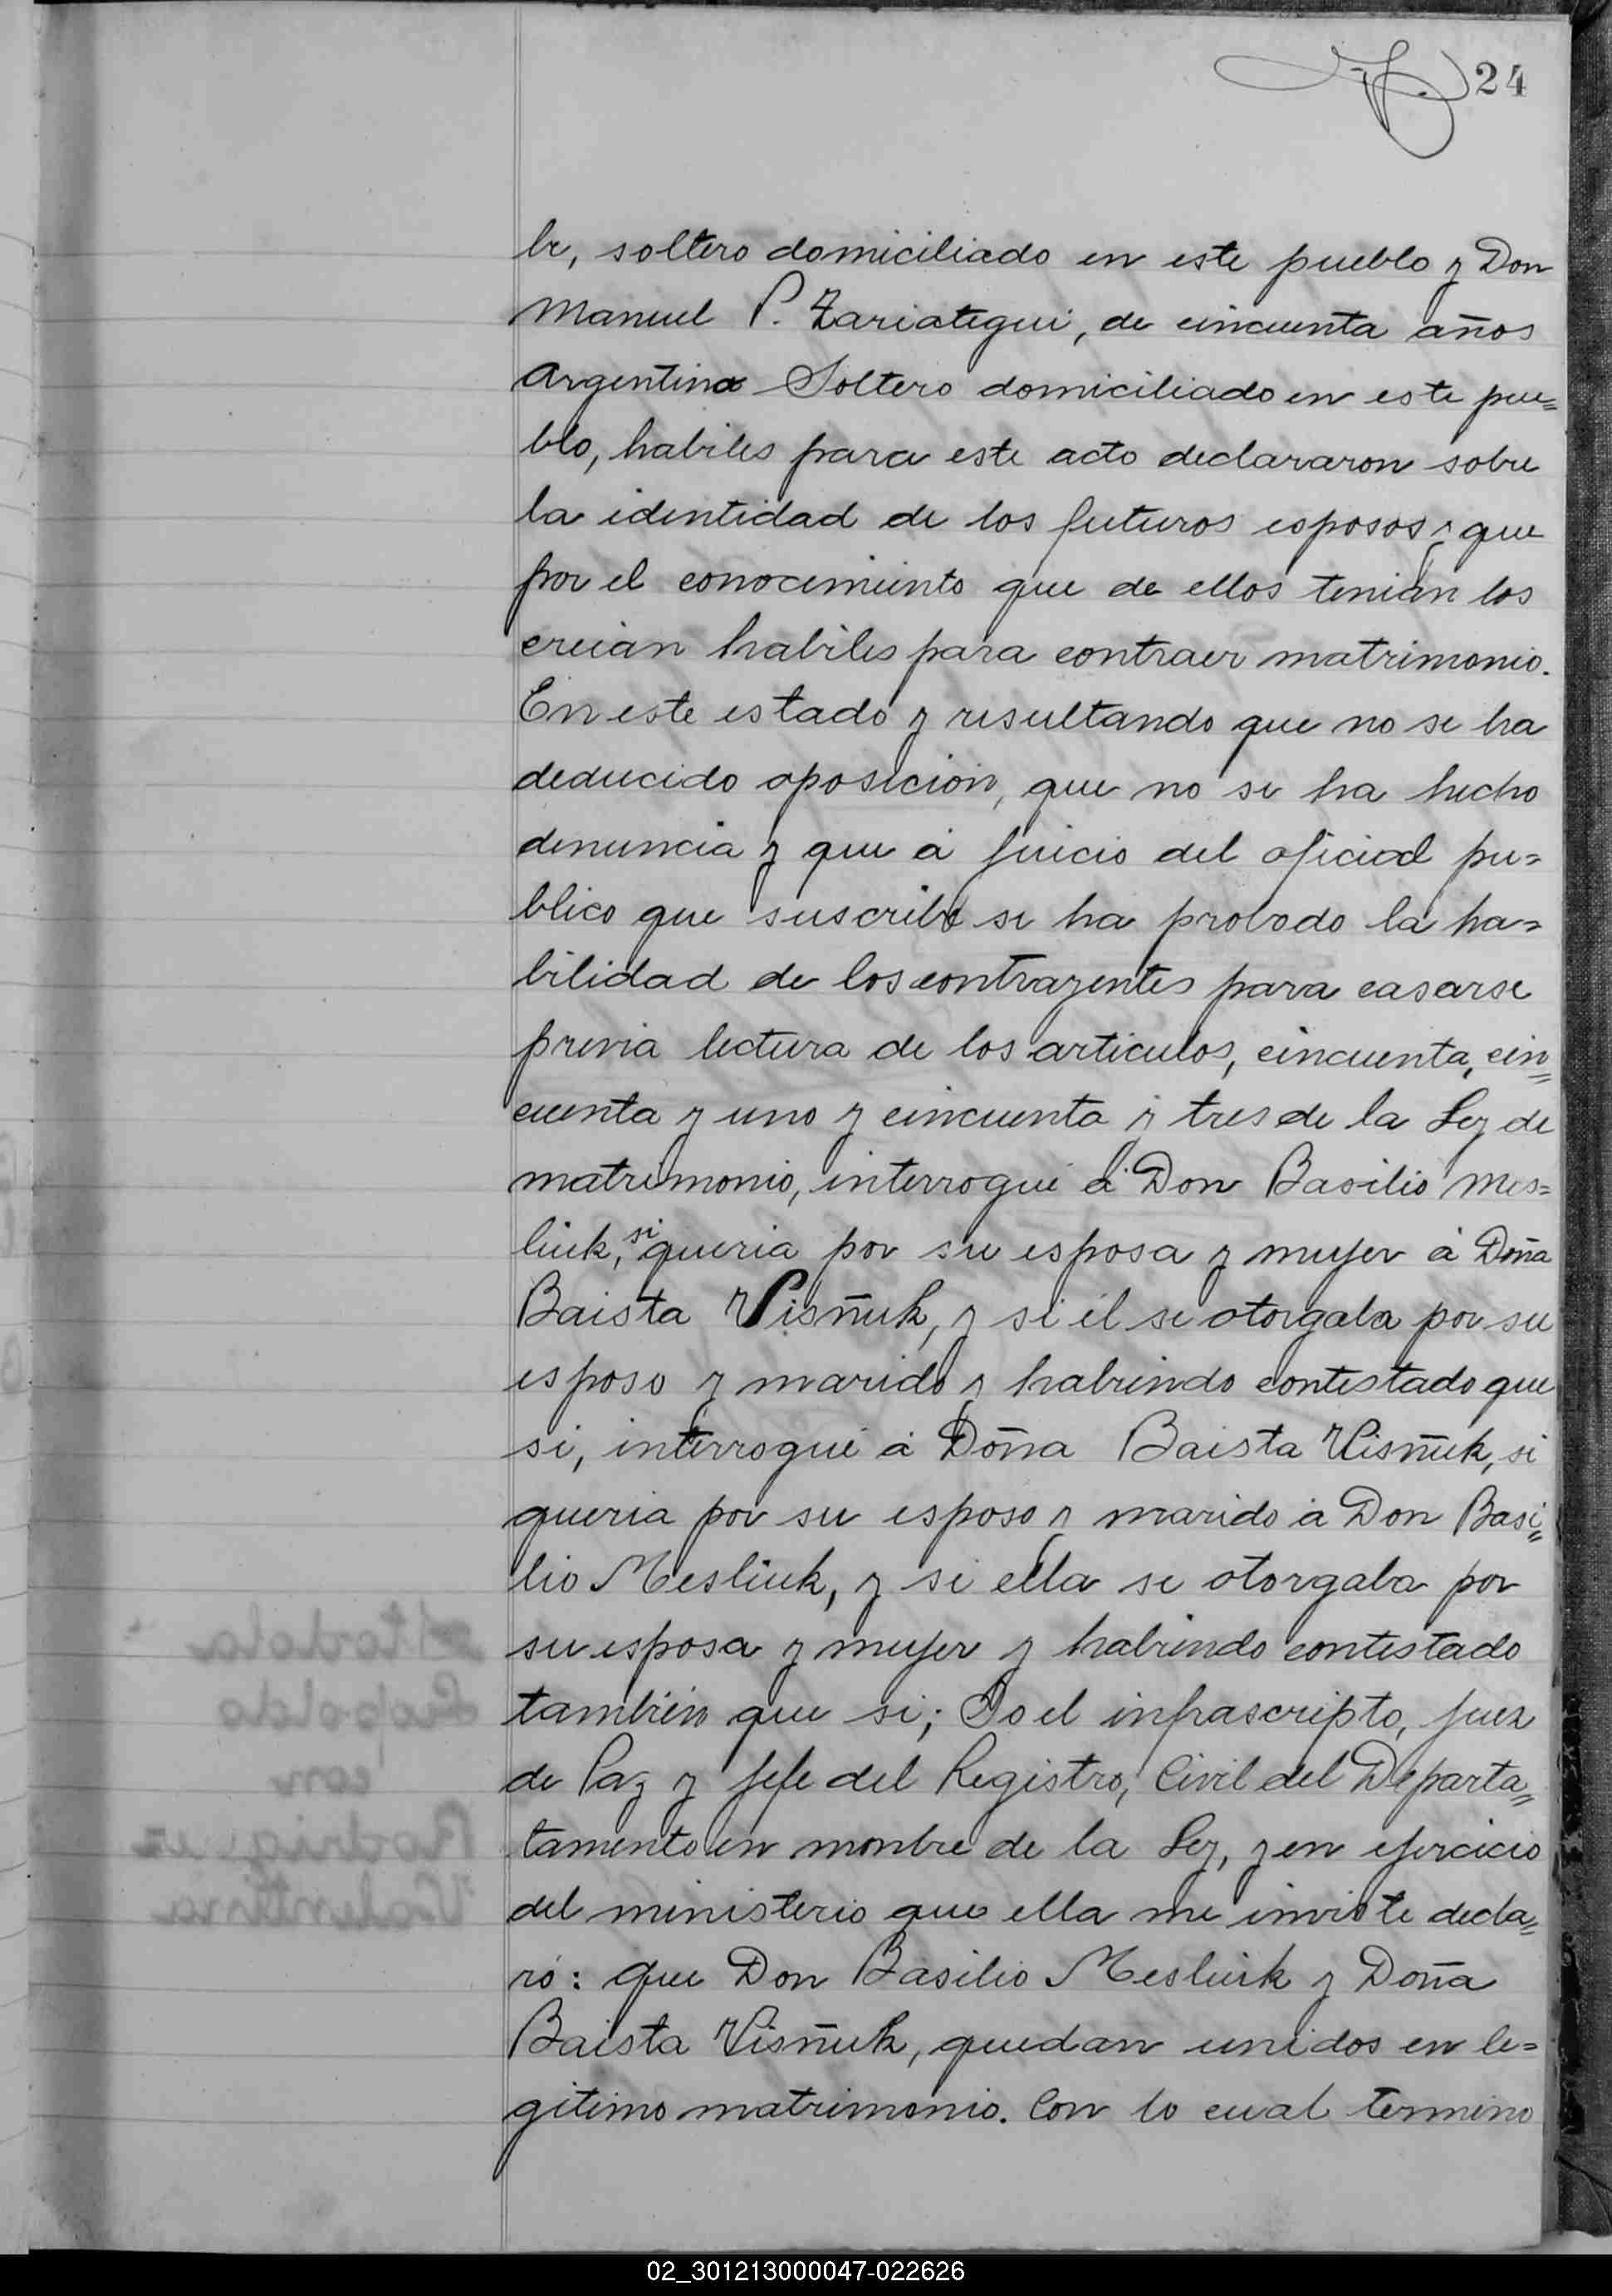 24
le, soltero domiciliado en este pueblo y Don
Manuel P. Zariategui, de cincuenta años
Argentino Soltero domiciliado en este pue=
blo, habiles para este acto declararon sobre
la identidad de los futuros esposos y que
por el conocimiento que de ellos tenian los
creian habiles para contraer matrimonio.
En este estado y resultando que no se ha
deducido oposicion, que no se ha hecho
denuncia y que á juicio del oficial pu=
blico que suscribe se ha probado la ha=
bilidad de los contrayentes para casarse
previa lectura de los articulos, cincuenta, cin=
cuenta y uno y cincuenta y tres de la Ley de
matrimonio, interrogué á Don Basilio Mes=
liuk, si queria por su esposa y mujer á Doña
Baista Visñuk, y si él se otorgaba por su
esposo y marido y habiendo contestado que
si, interrogué á Doña Baista Visñuk, si
queria por su esposo y marido á Don Basi=
lio Mesliuk, y si ella se otorgaba por
su esposa y mujer y habiendo contestado
también que si; Yo el infrascripto, Juez
de Paz y Jefe del Registro, Civil del Departa=
tamento en monbre de la Ley, y en ejercicio
del ministerio que ella me inviste decla=
ró: que Don Basilio Mesliuk y Doña
Baista Visñuk, quedan unidos en le=
gitimo matrimonio. Con lo cual termino
02_301213000047-022626